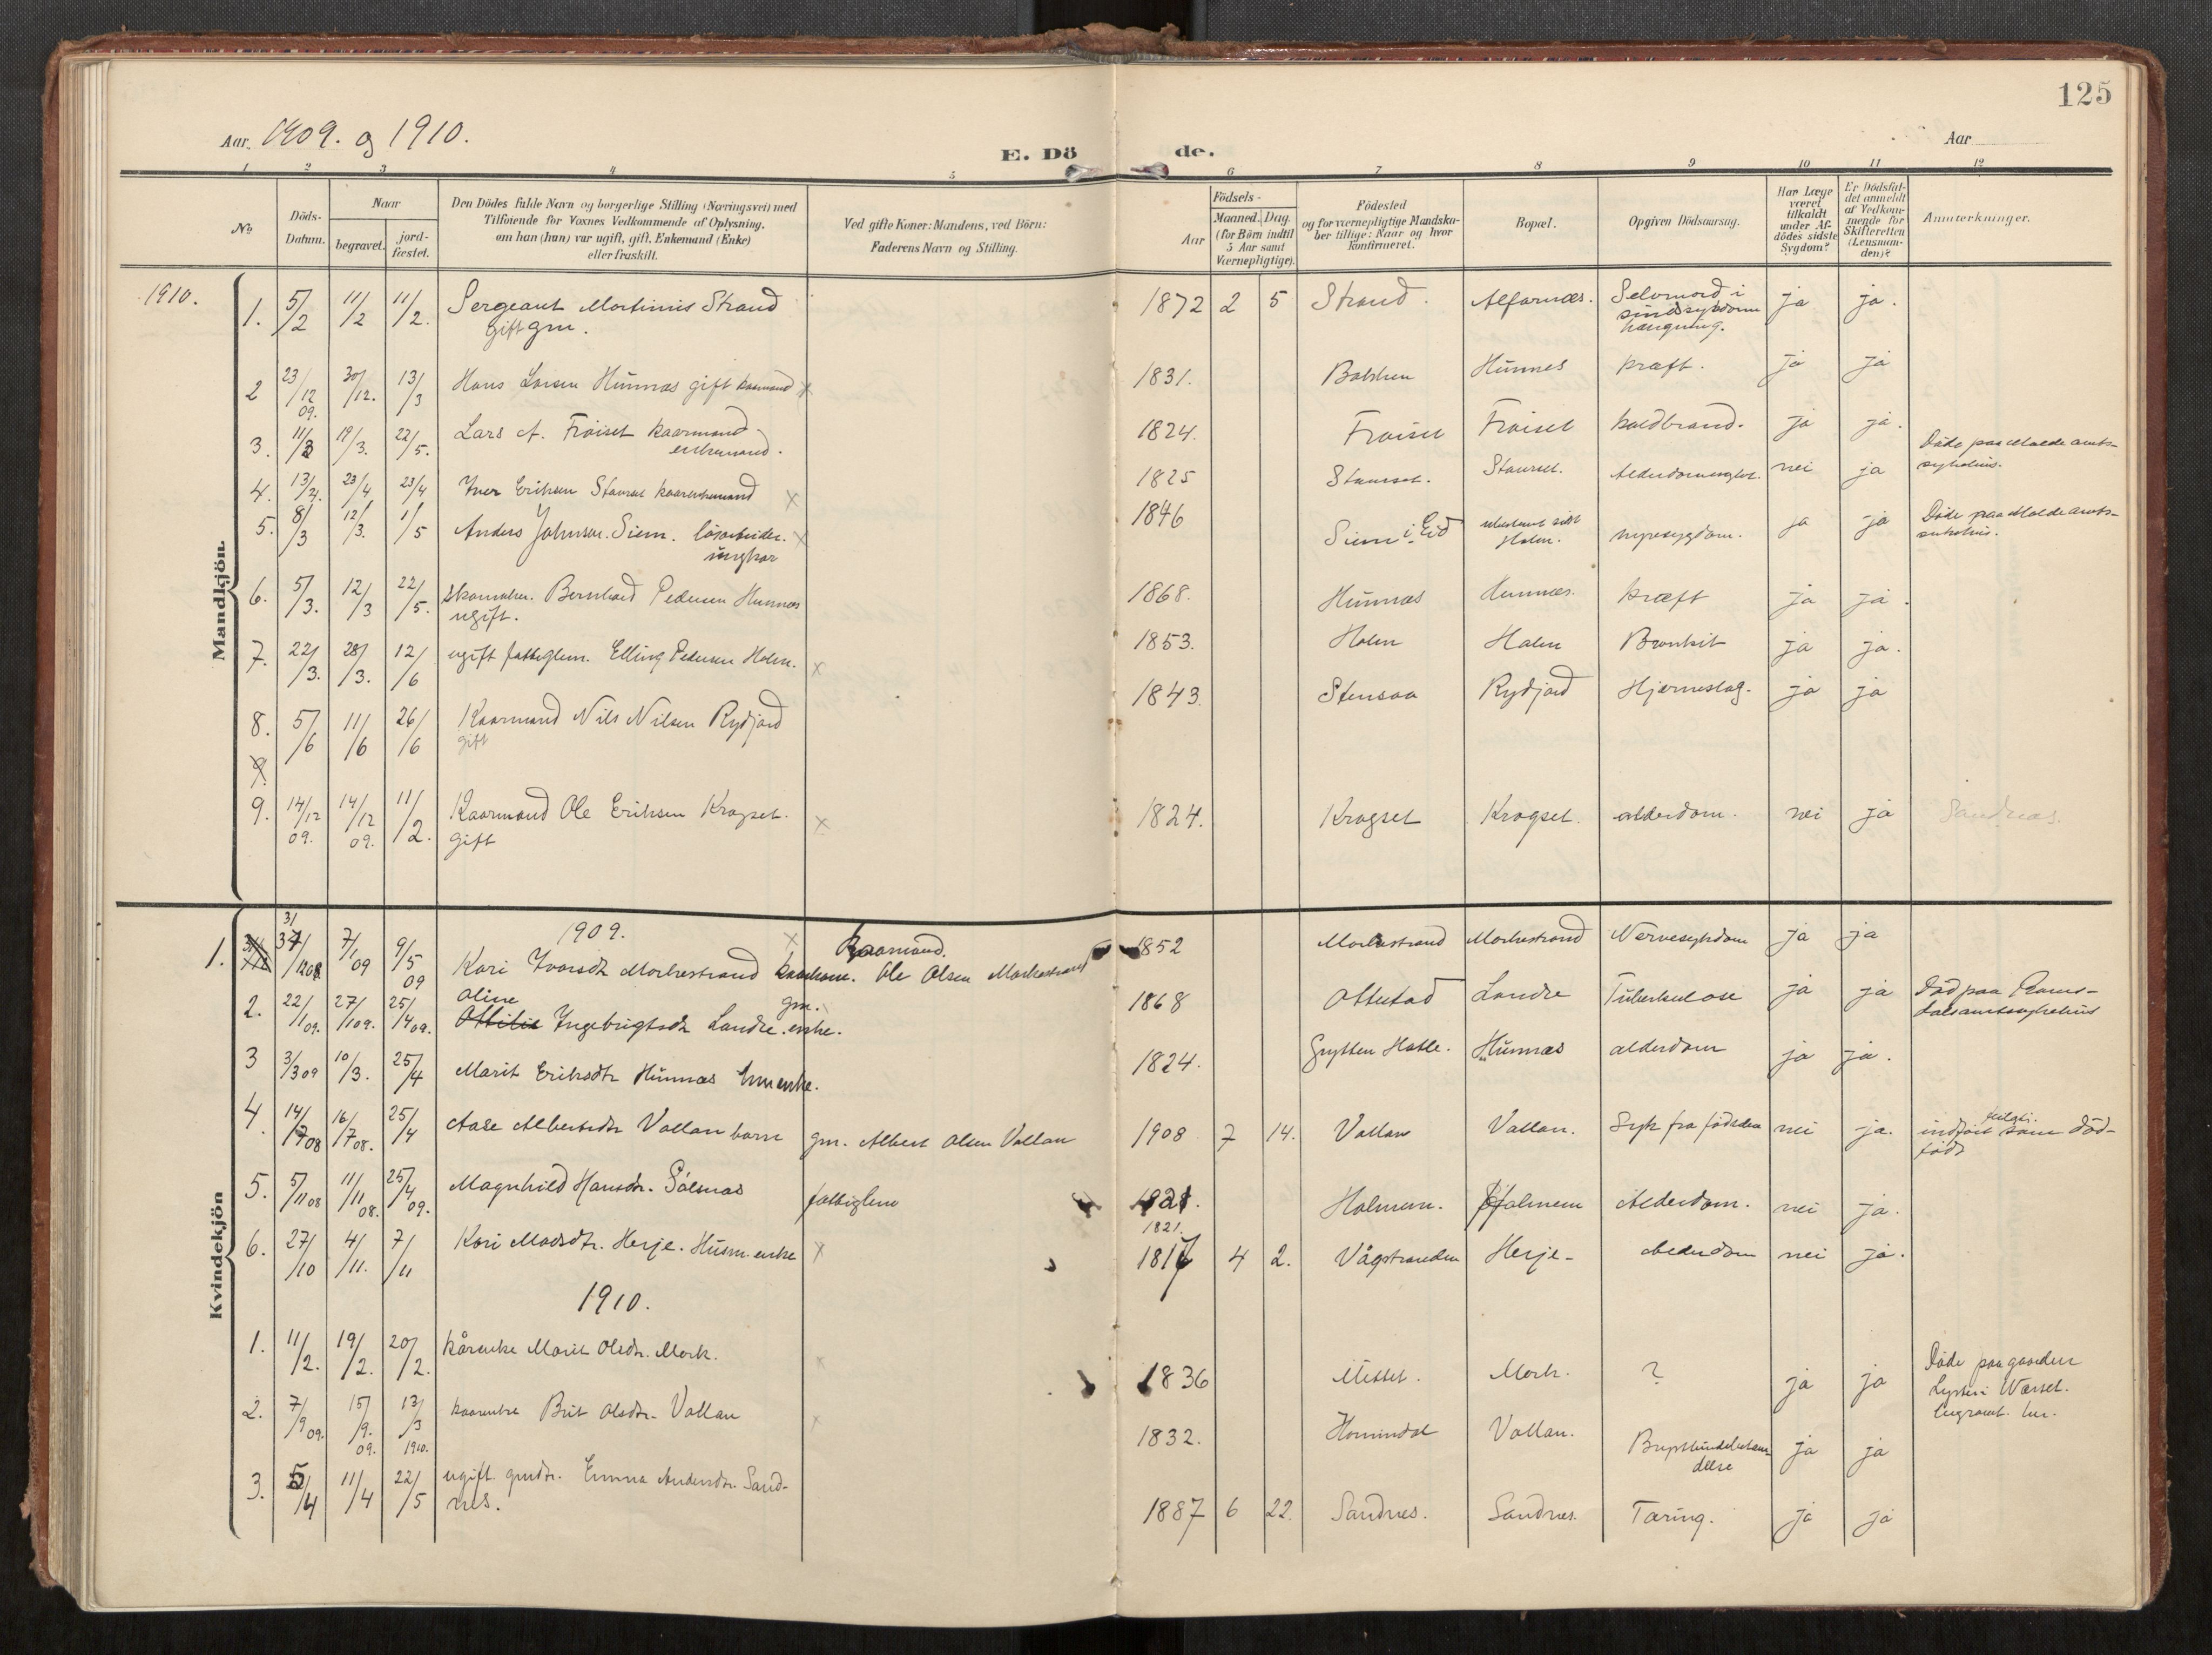 125
Aar. 1909. og 1910.
E. Dö de.
Aar
1 2 3 4 5 6 7 8 9 10 11 12
No
Döds-
Datum.
Naar
begravet.
jord-
fæstet.
Den Dödes fulde Navn og borgerlige Stilling (Næringsvei) med
Tilföiende for Voxnes Vedkommende af Oplysning,
om han (hun) var ugift, gift, Enkemand (Enke)
eller fraskilt.
Ved gifte Koner: Mandens, ved Börn:
Faderens Navn og Stilling.
Födsels-
Aar
Maaned. Dag.
(for Börn indtil
5 Aar samt
Værnepligtige).
Födested
og for værnepligtige Mandska-
ber tillige: Naar og hvor
konfirmeret.
Bopæl.
Opgiven Dödsaarsag.
Har Læge
været
tilkaldt
under Af-
dödes sidste
Sygdom?
Er Dödsfal-
det anmeldt
af Vedkom-
mende for
Skifteretten
(Lensman-
den)?
Anmærkninger.
Mandkjön.
1910.
1. 5/2 11/2 11/2. Sergeant Martinus Strand 1872 2 5 Strand. Alfarnæs. Selvmord i ja ja.
gift gm. sindssykdom
hængning.
2 23/12 09. 30/12. 13/3 Hans Larsen Hünnæs gift kaarmand x 1831. Hünnes kræft. ja ja
3. 11/3 19/3. 22/5. Lars A. Fröiset kaarmand 1824. Fröiset Fröiset koldbrand. ja ja.
enkemand.
4. 13/4. 23/4 23/4 Iver Eriksen Staurset x 1825 Staurset. Staurset. nei ja Döde paa Molde amts-
sykehus.
5. 8/3 12/3. 1/5 Anders Johnsen Siem. lösarbeider. x 1846 Siem i Eid Holm. nyresygdom. ja ja Döde paa Molde amts-
ungkar
6. 5/3. 12/3 22/5. skomaker. Bernhard Pedersen Hunnæs 1868. Hünnæs Hunnæs. kræft ja ja.
ugift.
7. 22/3. 28/3. 12/6 ugift fattiglem. Elling Pedersen Holm. x 1853. Holm Holm Bronkit ja ja.
8. 5/6 11/6 26/6 Kaarmand Nils Nilsen Rydjord 1843. Stensaa Rydjord Hjerneslag. ja ja
gift
9.
9. 14/12 09. 14/12 09. 11/2. Kaarmand Ole Eriksen Krogset. x 1824. Krogset Krogset. alderdom. nei ja Sandnæs.
gift
Kvindekjön
1909.
1. 31/12 08 7/1 09 9/5 09 Kari Ivarsdtr Morkestrand x Kaarmand. Ole Olsen Morkestrand 1852 Morkestrand Morkestrand Nervesykdom ja ja
2. 22/1 09. 27/1 09. 25/4 09. Oline Ingebrigtsdtr Landre. gm. enke. 1868 Ottestad Landre Tuberkulose ja ja Död paa Roms-
dalsamtssykehus
3 3/3 09 10/3. 25/4 Marit Eriksdtr Hünnæs 1824. Grytten Hatle. Hünnæs alderdom ja ja.
4. 14/7 08 16/7 08. 25/4 Aase Albertsdtr Vollan barn gm. Albert Olsen Vollan 1908 7 14. Vollan Vollan. Syk fra födselen nei ja. indfört som död-
född
5. 5/11 08 11/11 08. 25/4 09. Magnhild Hansdtr. Sölsnæs fattiglem 1821. Holmem. Holmem Alderdom. nei ja.
1821.
6. 27/10 4/11. 7/11 Kari Madsdtr. Herje. Husm. enke x 1817 4 2. Vågstranden Herje Alderdom nei ja.
1910.
1. 11/2. 19/2. 20/2. kårenke Marit Olsdtr. Mork. x 1836 Misset. Mork. ? ja ja Döde paa gaarden
2. 7/9 09. 15/9. 09. 13/3 1910. kaarenke Brit Olsdtr. Vollan x 1832. Hornindal Vollan. ja ja
3. 5/4 11/4 22/5 ugift gmdtr. Emma Andersdtr. Sand- 1887 6 22. Sandnes. Sandnes. Tæring. ja ja
nes.